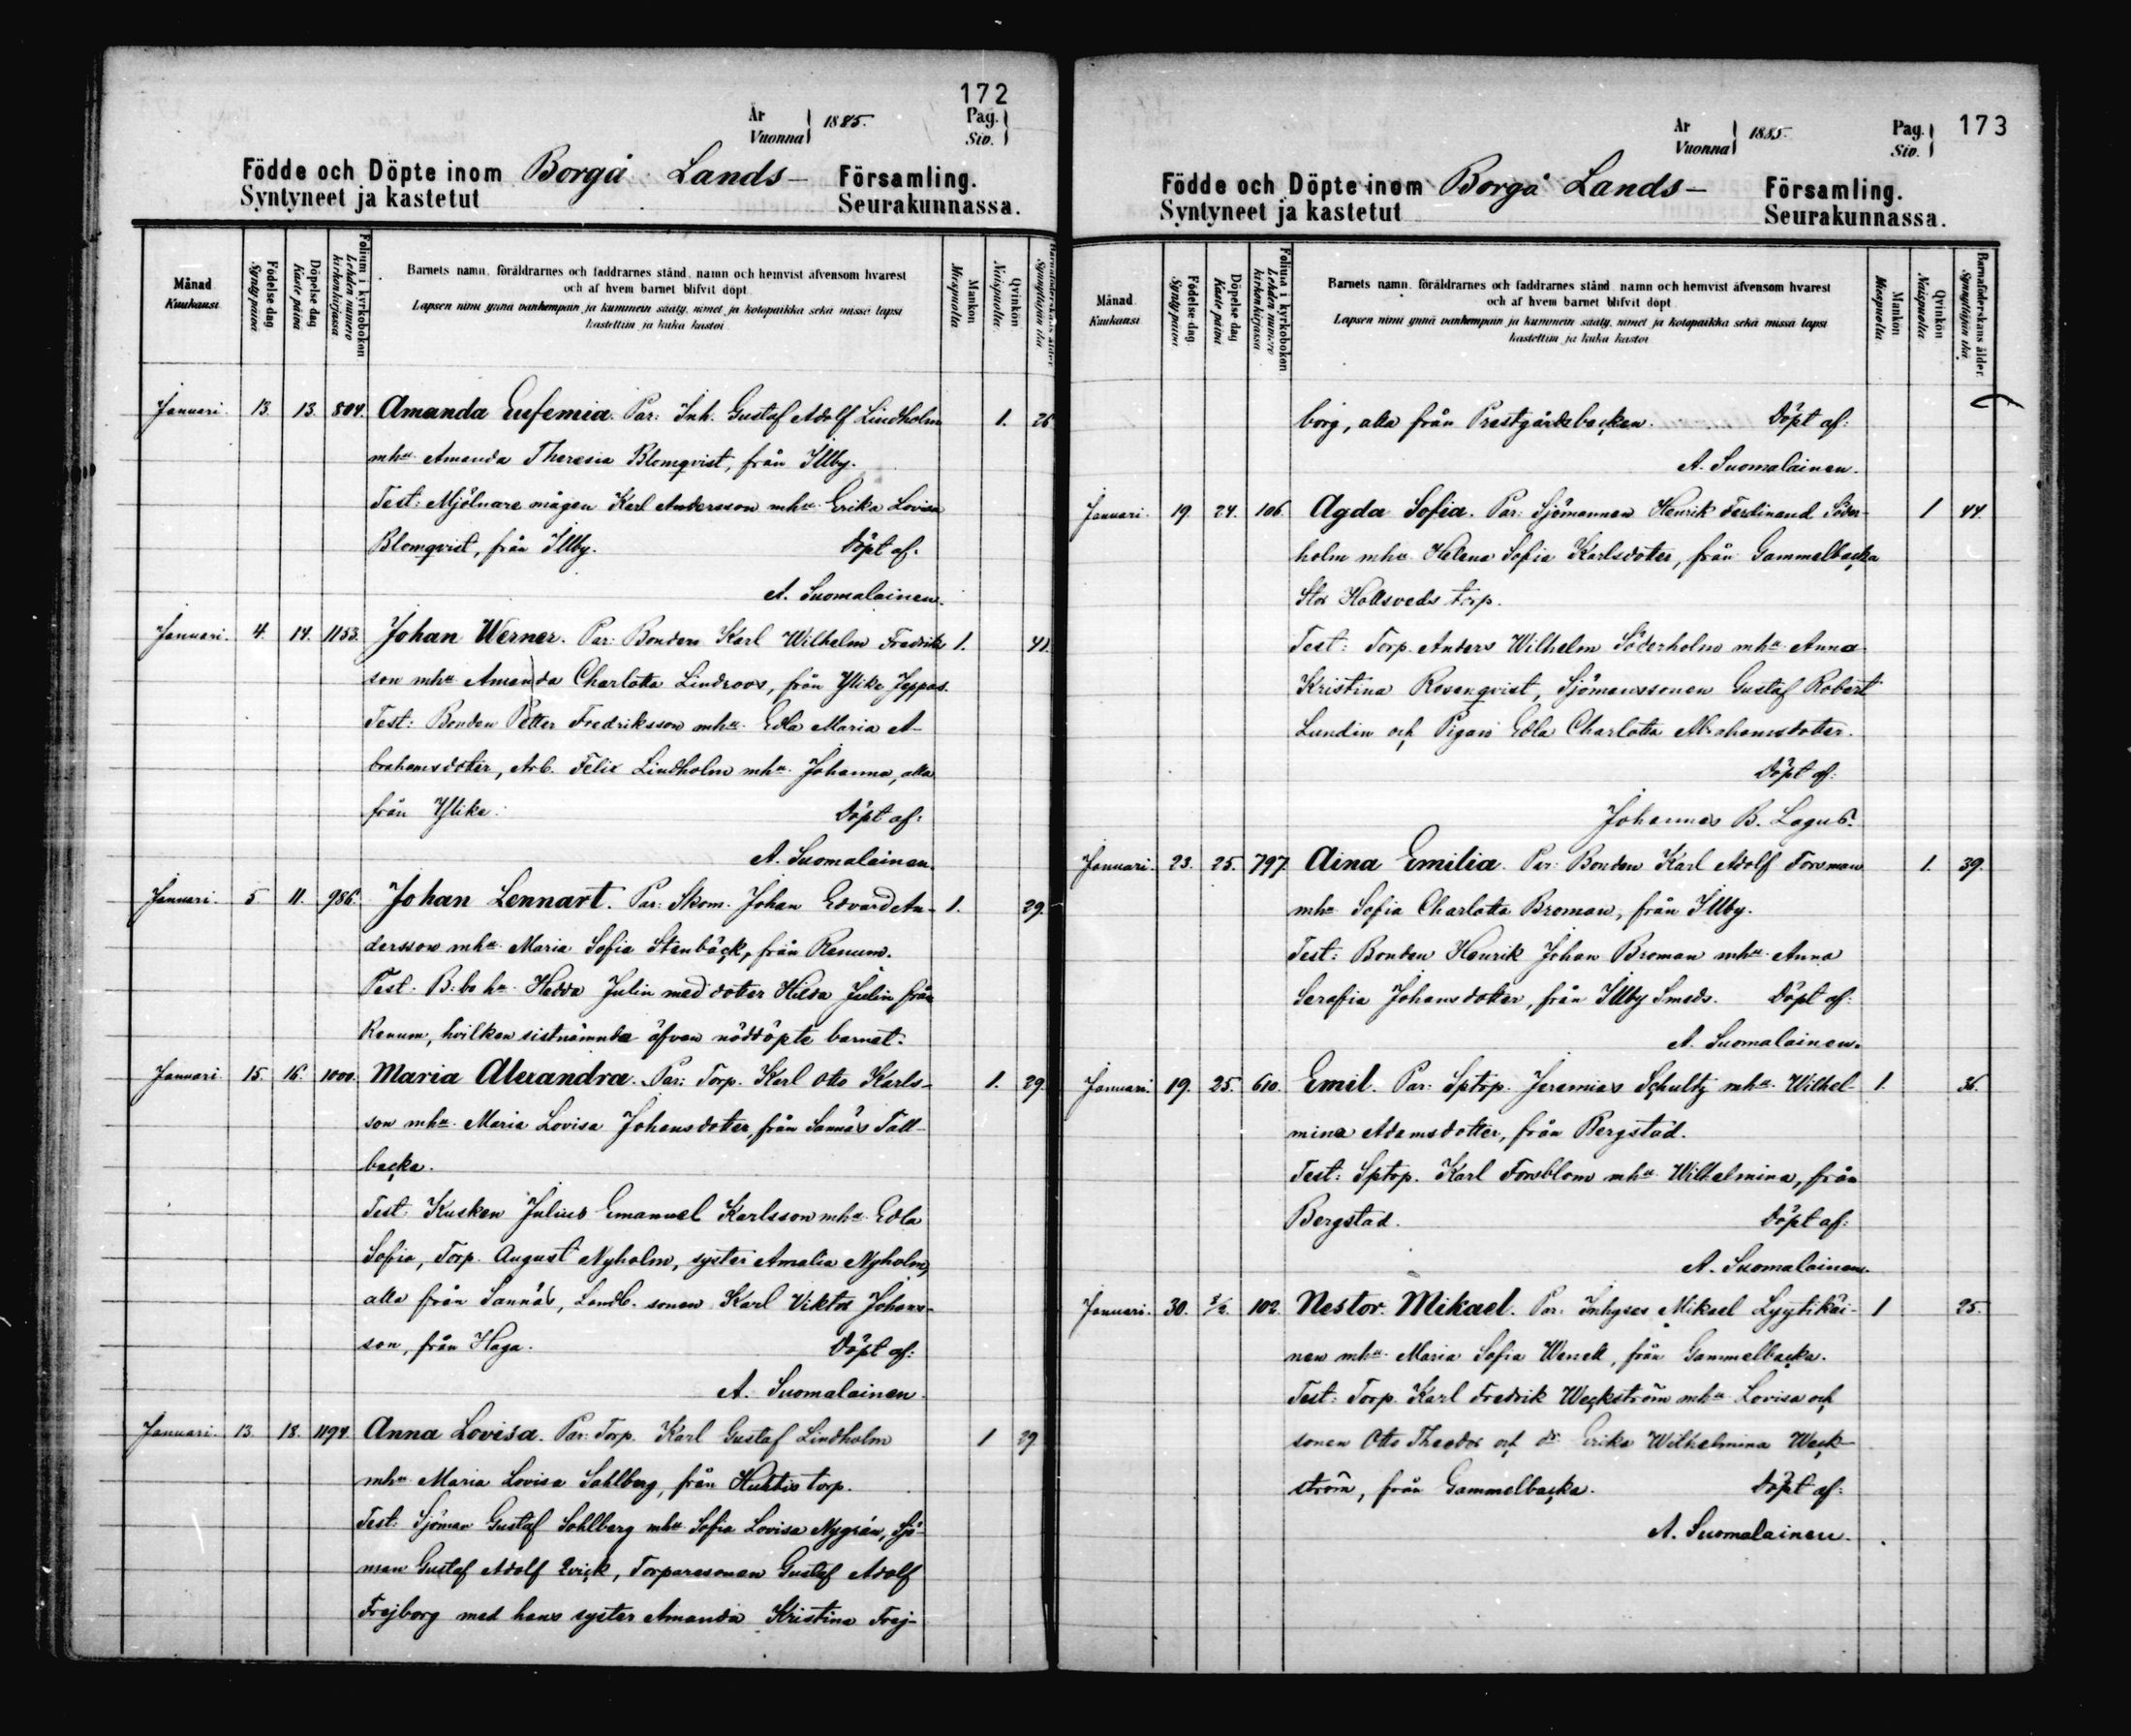 172
År
Vuonna
1885.
Pag.
Siv.
Födde och Döpte inom Borgå Lands- Församling.
Syntyneet ja kastetut Seurakunnassa.
Månad
Kuukausi
Födelse dag
Synty päivä
Döpelse dag
Kaste päivä
Folium i kyrkoboken
Lehden numero kirkonkirjassa
Barnets namn, föräldrarnes och faddrarnes stånd, namn och hemvist äfvensom hvarest
och af hvem barnet blifvit döpt.
Lapsen nimi ynnä vanhempain ja kummein sääty, nimet ja kotopaikka sekä missä lapsi
kastettiin ja kuka kastoi
Mankön
Miespuolia
Qvinkön
Naispuolia
Barnaföderskans ålder
Synnyttäjän ikä
Januari. 13. 13. 804. Amanda Eufemia. Par: Inh. Gustaf Adolf Lindholm 1. 26
mhu Amanda Theresia Blomqvist, från Illby.
Test: Mjölnare mågen Karl Andersson mhu Erika Lovisa
Blomqvist, från Illby. Döpt af.
A. Suomalainen.
Januari. 4. 14. 1153. Johan Werner. Par: Bonden Karl Wilhelm Fredriks 1. 41.
son mhu Amanda Charlotta Lindroos, från Ylike Jeppas.
Test: Bonden Petter Fredriksson mhu Edla Maria A-
brahamsdotter, Arb. Felix Lindholm mhu Johanna, alla
från Ylike. Döpt af:
A. Suomalainen.
Januari. 5 11. 986. Johan Lennart. Par: Skom. Johan Edvard An- 1. 29.
dersson mhu Maria Sofia Stenbäck, från Renum.
Test. B: be hu Hedda Julin med dotter Hilda Julin från
Renum, hvilken sistnämnda äfven nöddöpte barnet.
Januari 15. 16. 1000. Maria Alexandra. Par: Torp. Karl Otto Karls- 1. 29.
son mhu Maria Lovisa Johansdotter, från Sannäs Tall-
backa.
Test Kusken Julius Emanuel Karlsson mhu Edla
Sofia, Torp. August Nyholm, syster Amalia Nyholm,
alla från Sannäs, Landb. sonen Karl Viktor Johans-
son, från Haga. Döpt af:
A. Suomalainen.
Januari. 13. 18. 1194. Anna Lovisa. Par: Torp. Karl Gustaf Lindholm 1 29
mhu Maria Lovisa Sahlberg, från torp.
Test: Sjöman Gustaf Sohlberg mhu Sofia Lovisa Nygrén, Sjö-
man Gustaf Adolf Qvick, Torparesonen Gustaf Adolf
Frejborg med hans syster Amanda Kristina Frej-
173
År
Vuonna
1885.
Pag.
Siv.
Födde och Döpte inom Borgå Lands- Församling.
Syntyneet ja kastetut Seurakunnassa.
Månad
Kuukausi
Födelse dag
Synty päivä
Döpelse dag
Kaste päivä
Folium i kyrkoboken
Lehden numero kirkonkirjassa
Barnets namn, föräldrarnes och faddrarnes stånd, namn och hemvist äfvensom hvarest
och af hvem barnet blifvit döpt
Lapsen nimi ynnä vanhempain ja kummein sääty, nimet ja kotopaikka sekä missä lapsi
kastettiin ja kuka kastoi
Mankön
Miespuolia
Qvinkön
Naispuolia
Barnaföderskans ålder.
Synnyttäjän ikä
borg, alla från Prestgårdsbacken. Döpt af:
A. Suomalainen.
Januari. 19. 24. 106. Agda Sofia. Par: Sjömannen Henrik Ferdinand Söder- 1 44.
holm mhu Helena Sofia Karlsdotter, från Gammelbacka
Stor torp.
Test: Torp. Anders Wilhelm Söderholm mhu Anna
Kristina Rosenqvist, Sjömanssonen Gustaf Robert
Lundin och Pigan Edla Charlotta Abrahamsdotter.
Döpt af:
Johannes B. Lagus.
Januari. 23. 25. 797. Aina Emilia. Par: Bonden Karl Adolf Forsman 1. 39.
mhu Sofia Charlotta Broman, från Illby.
Test: Bonden Henrik Johan Broman mhu Anna
Serafia Johansdotter, från Illby Smeds. Döpt af:
A. Suomalainen.
Januari. 19. 25. 610. Emil. Par: Sptrp. Jeremias Schultz mhu Wilhel- 1. 36.
mina Adamsdotter, från Bergstad.
Test: Sptrp. Karl Forsblom mhu Wilhelmina, från
Bergstad. Döpt af:
A. Suomalainen.
Januari. 30. 1/2. 102. Nestor Mikael. Par: Inhyses Mikael Lyytikäi- 1 25.
nen mhu Maria Sofia, från Gammelbacka.
Test: Torp. Karl Fredrik Weckström mhu Lovisa och
sonen Otto Theodor och dr Erika Wilhelmina Weck-
ström, från Gammelbacka. Döpt af:
A. Suomalainen.